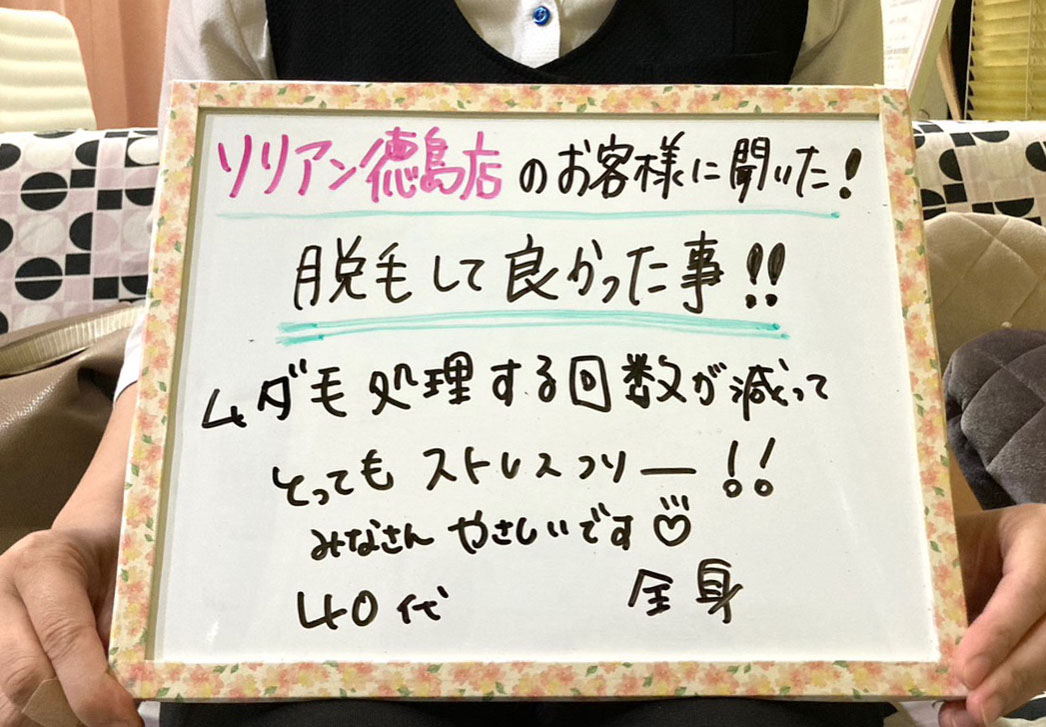 リリアン徳島店のお客様に聞いた!
脱毛して良かった事!!
ムダ毛処理する回数が減って
とってもストレスフリー!!
みなさんやさしいです♡
40代 全身